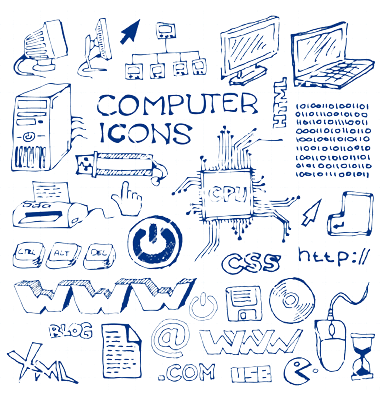 COMPUTER
ICONS
HTML
CPU
CTRL
ALT
DEL
CSS
http://
WWW
BLOG
@
WWW
XML
.COM
USB